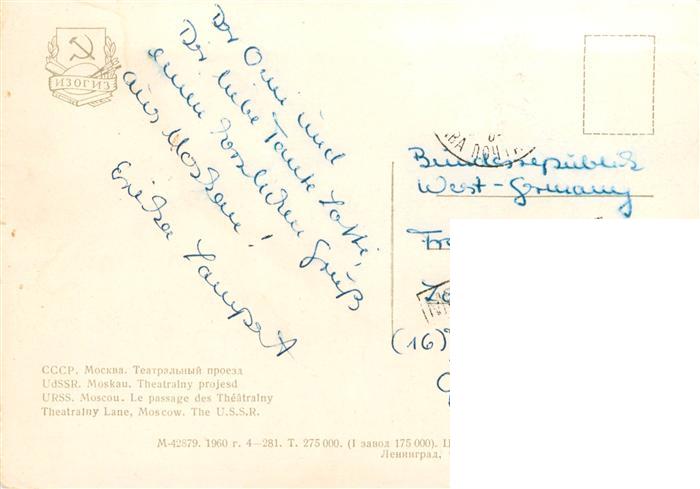 ИЗОГИЗ
Der Omi und
Dir liebe Tante Lotti,
einen herzlichen Gruß
aus Moskau!
Erika Lampert
ВА ПОЧТ
Bundesrepublik
West-Germany
Fr
(16)
СССР. Москва. Театральный проезд
UdSSR. Moskau. Theatralny projesd
URSS. Moscou. Le passage des Théâtralny
Theatralny Lane, Moscow. The U.S.S.R.
М-42879. 1960 г. 4—281. Т. 275 000. (I завод 175 000). Ц
Ленинград,